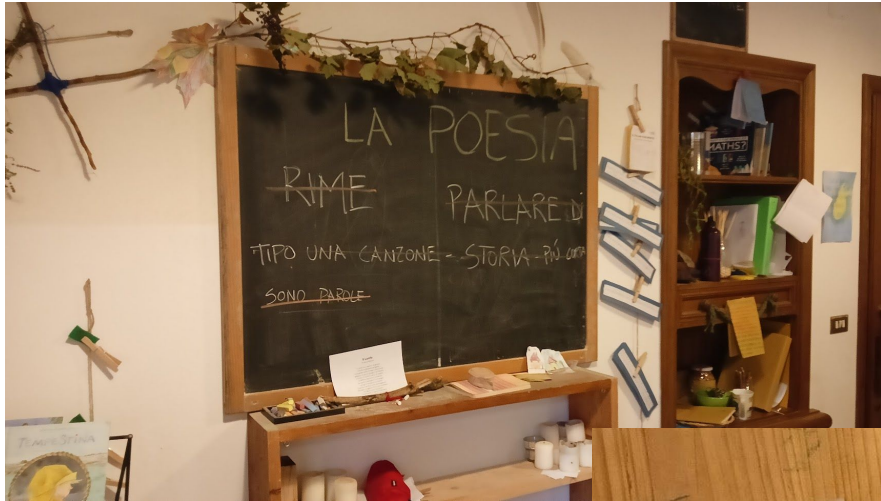 LA POESIA
RIME
PARLARE DI
TIPO UNA CANZONE - STORIA PIÚ CORTA
SONO PAROLE
MATHS?
TEMPESTINA